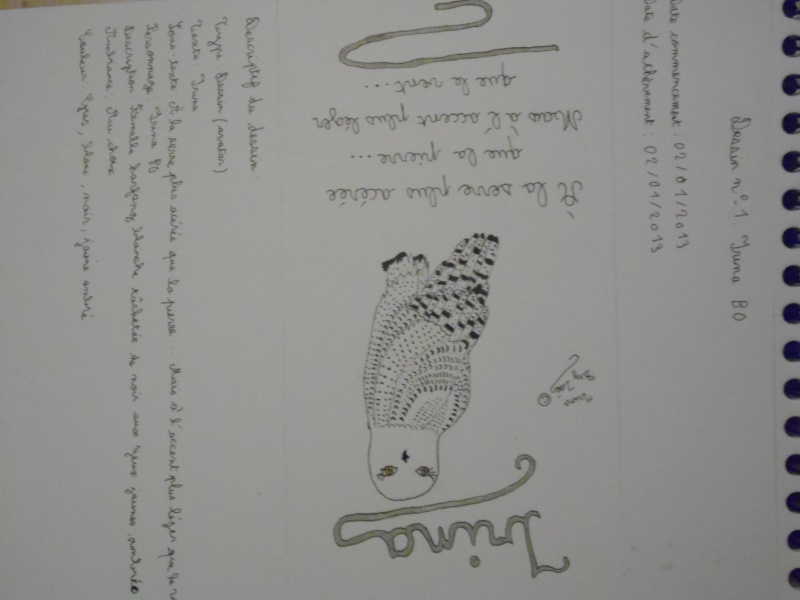 Dessin n°1 : Irina BO
Date commencement : 02/01/2013
Date d'achèvement : 02/01/2013
Irina
À la serre plus acérée
que la pierre...
Mais à l'accent plus léger
que le vent...
Descriptif du dessin
Type : Dessin (avatar)
Texte : Irina
Sous-texte : À la serre plus acérée que la pierre... Mais à l'accent plus léger que le
Personnage : Irina BO
Description : Femelle harfang blanche tâchetée de noir aux yeux jaunes ambrés
Couleur : Gris, blanc, noir, jaune ambré